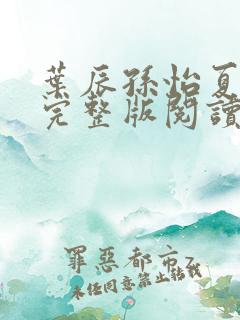 葉辰孫怡夏
完整版閱讀
罪惡都市z
未经同意禁止转载